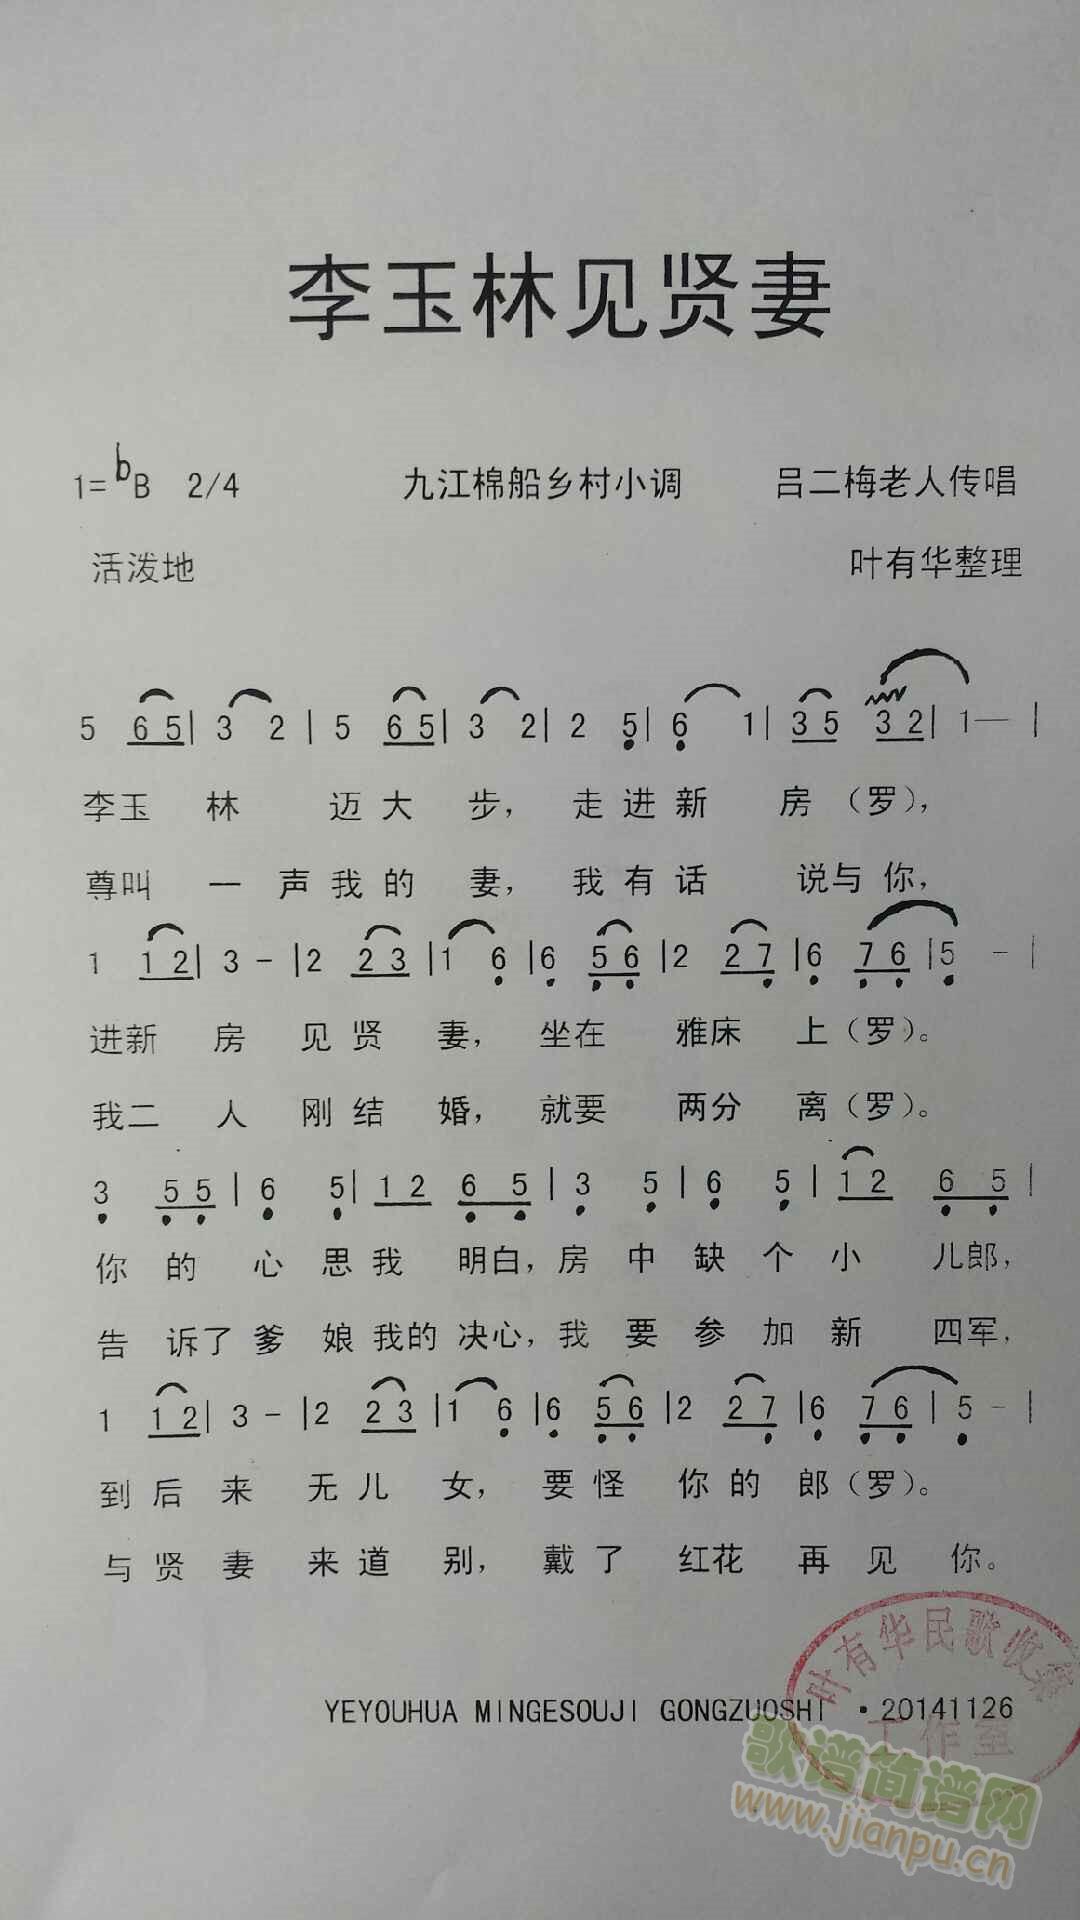 李玉林见贤妻
1=bB 2/4 九江棉船乡村小调 吕二梅老人传唱
活泼地 叶有华整理
5 65| 3 2 | 5 65| 3 2| 2 5| 6 1| 35 32| 1— |
李玉 林 迈大 步，走进新 房（罗），
尊叫 一 声我的 妻，我有话 说与你，
1 12| 3 - |2 23 |1 6 |6 56 |2 27 |6 76 |5 - |
进新 房 见贤 妻，坐在 雅床 上（罗）。
我二 人 刚结 婚，就要 两分 离（罗）。
3 55 | 6 5| 12 65 | 3 5 | 6 5 | 12 65 |
你 的 心 思我 明白，房 中 缺 个 小 儿郎，
告 诉了爹 娘我的决心，我 要 参 加 新 四军，
1 12| 3 - |2 23 |1 6 |6 56 |2 27 |6 76 | 5 - |
到后 来 无儿 女，要怪 你的 郎（罗）。
与贤 妻 来道 别，戴了 红花 再见 你。
叶有华民歌收集
YEYOUHUA MINGESOUJI GONGZUOSHI ·20141126
工作室
歌谱简谱网
www.jianpu.cn